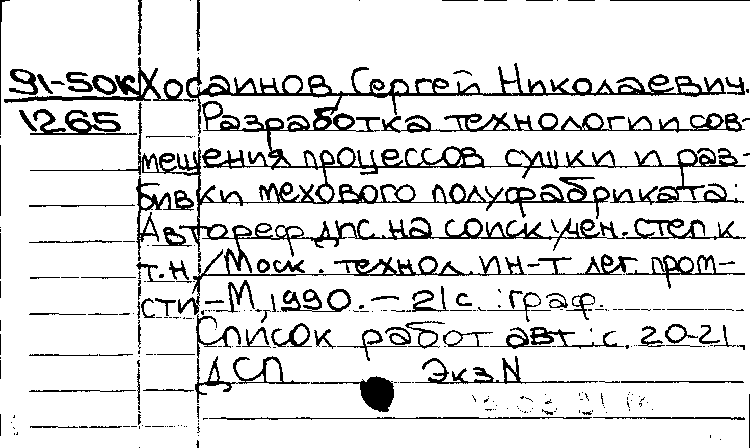 91-50к Хосаинов, Сергей Николаевич.
1265 Разработка технологии сов-
мещения процессов сушки и раз-
бивки мехового полуфабриката:
Автореф. дис. на соиск. учен. степ. к.
т.н. / Моск. технол. ин-т лег. пром-
сти. – М., 1990. – 21 с. : граф.
Список работ авт.: с. 20-21.
ДСП Экз. N